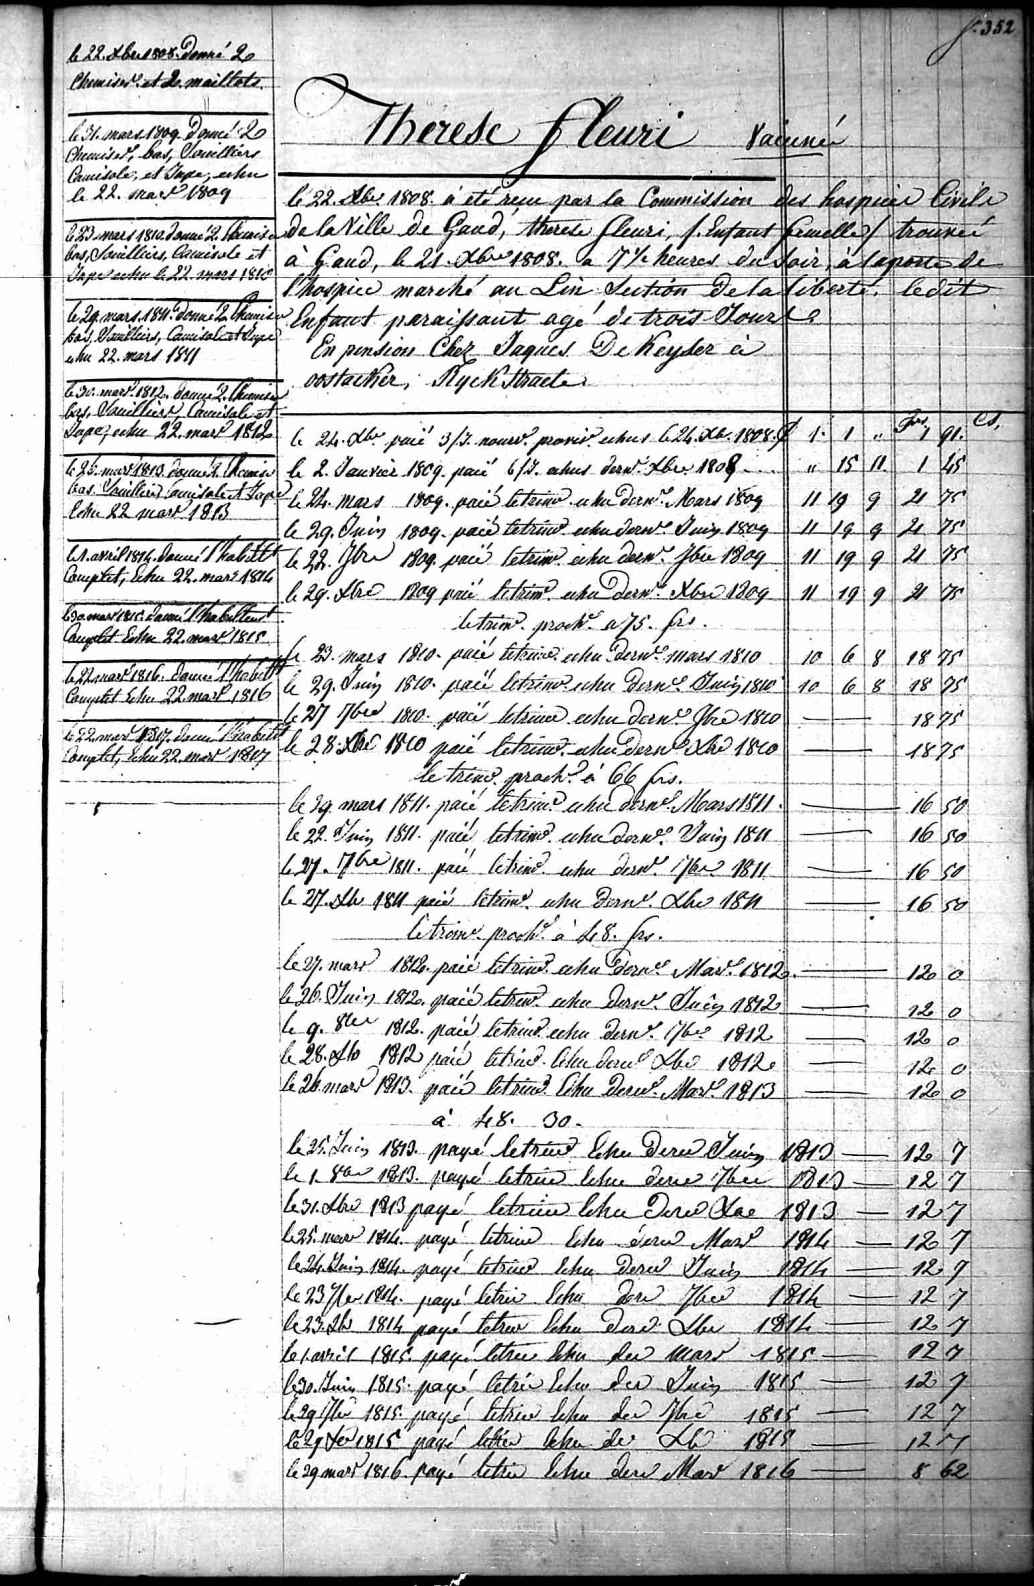 f. 352
le 22. Xbre 1808. donné 2
Chemises. et 2. maillots.
le 31. mars 1809. Donné 2
Chemises, bas, Souilliers
Camisole, et Jupe, echu
le 22. mars 1809
le 23 mars 1810. donné 2. Chemises
bas, Souilliers, Camisole et
Jupe echu le 22. mars 1810
le 29. mars. 1811. donné 2 Chemises
bas, Souilliers, Camisole et Jupe
echu 22. mars 1811
le 30. mars. 1812. donné 2. Chemises
bas, Souilliers, Camisole et
Jupe, echu 22. mars 1812
le 25. mars 1813. donné 2. Chemises
bas Souilliers Camisole et Jupe
Echu 22 mars 1813
le 1. avril 1814. Donné l'habillt
Complet, Echu 22. mars 1814
le 30 mars 1815. donné l'habillemt
Complet Echu 22. mars 1815
le 22 mars 1816. donné l'habillt
Complet Echu 22. mars 1816
le 22. mars 1817. donné l'habillt
Complet, Echu 22. mars 1817
Therese fleuri Vaccinée
le 22. Xbre 1808. a été recu par la Commission des hospices Civils
de la Ville de Gand, therese fleuri, /. Enfant femelle / trouvée
à Gand, le 21. Xbre 1808. a 7 1/2 heures du Soir, à la porte de
l'hospice marché au Lin Section de la liberté. ledit
Enfant paraissant agé de trois Jours
En pension Chez Jaques De Keyser à
oostacker, Ryckstraete.
Frs. Cs.
le 24. Xbre paié 3/J. nourr. provis. echus le 24. Xbr. 1808. 1. 1 " 1 91.
le 2. Janvier 1809. paié 6/J. echus dern. Xbre 1808 " 15 11. 1 45
le 24. mars 1809. paié le trimr. echu dern. Mars 1809 11 19 9 21 75
le 29. Juin 1809. paié le trimr. echu dern. Juin 1809 11 19 9 21 75
le 22. 7bre 1809. paié le trimr. echu dern. 7bre 1809 11 19 9 21 75
le 29. Xbre 1809 paié le trimr. echu dern. Xbre 1809 11 19 9 21 75
le trimr. proch. a 75. frs.
le 23. mars 1810. paié le trimr. echu dern. mars 1810 10 6 8 18 75
le 29. Juin 1810. paié le trimr. echu dern. Juin 1810 10 6 8 18 75
le 27 7bre 1810. paié le trimr. echu dern. 7bre 1810 — 18 75
le 28. Xbre 1810 paié le trimr. echu dern. Xbre 1810 — 18 75
le trimr. proch. à 66 frs.
le 29. mars 1811. paié le trimr. echu dern. Mars 1811. — 16 50
le 22. Juin 1811. paié le trimr. echu dern. Juin 1811 — 16 50
le 27. 7bre 1811. paié le trimr. echu dern. 7bre 1811 — 16 50
le 27. Xbr 1811 paié le trimr. echu Dern. Xbre 1811 — 16 50
le trimr. proch. à 48. frs.
le 27. mars 1812. paié le trimr. echu dern. Mars. 1812. — 12 0
le 26. Juin 1812. paié le trimr. echu dern. Juin 1812 — 12 0
le 9. 8bre 1812. paié le trimr. echu dern. 7bre 1812 — 12 0
le 28. Xbr 1812 paié le trimr. Echu dern. Xbre 1812. — 12 0
le 26. mars 1813. paié le trimr. Echu dern. Mars. 1813 — 12 0
à 48. 30.
le 25. Juin 1813. payé le trimr Echu dern Juin 1813 — 12 7
le 1. 8bre 1813. payé le trimr Echu dern 7bre 1813 — 12 7
le 31. Xbre 1813 payé le trimr Echu dern Xbre 1813 — 12 7
le 25. mars 1814. payé le trimr Echu dern Mars 1814 — 12 7
le 24. Juin 1814. payé le trimr Echu dern Juin 1814 — 12 7
le 23 7bre 1814. payé le trimr Echu dern 7bre 1814 — 12 7
le 23. Xbr 1814 payé le trimr Echu dern. Xbre 1814 — 12 7
le 1. avril 1815. payé le trimr Echu der mars 1815 — 12 7
le 30. Juin 1815. payé le trimr Echu der Juin 1815 — 12 7
le 29 7bre 1815 payé le trimr Echu der 7bre 1815 — 12 7
le 29 Xbr 1815 payé le trimr Echu der Xbr 1815 — 12 7
le 29 mars 1816. payé le trimr Echu dern Mars 1816 — 8 62